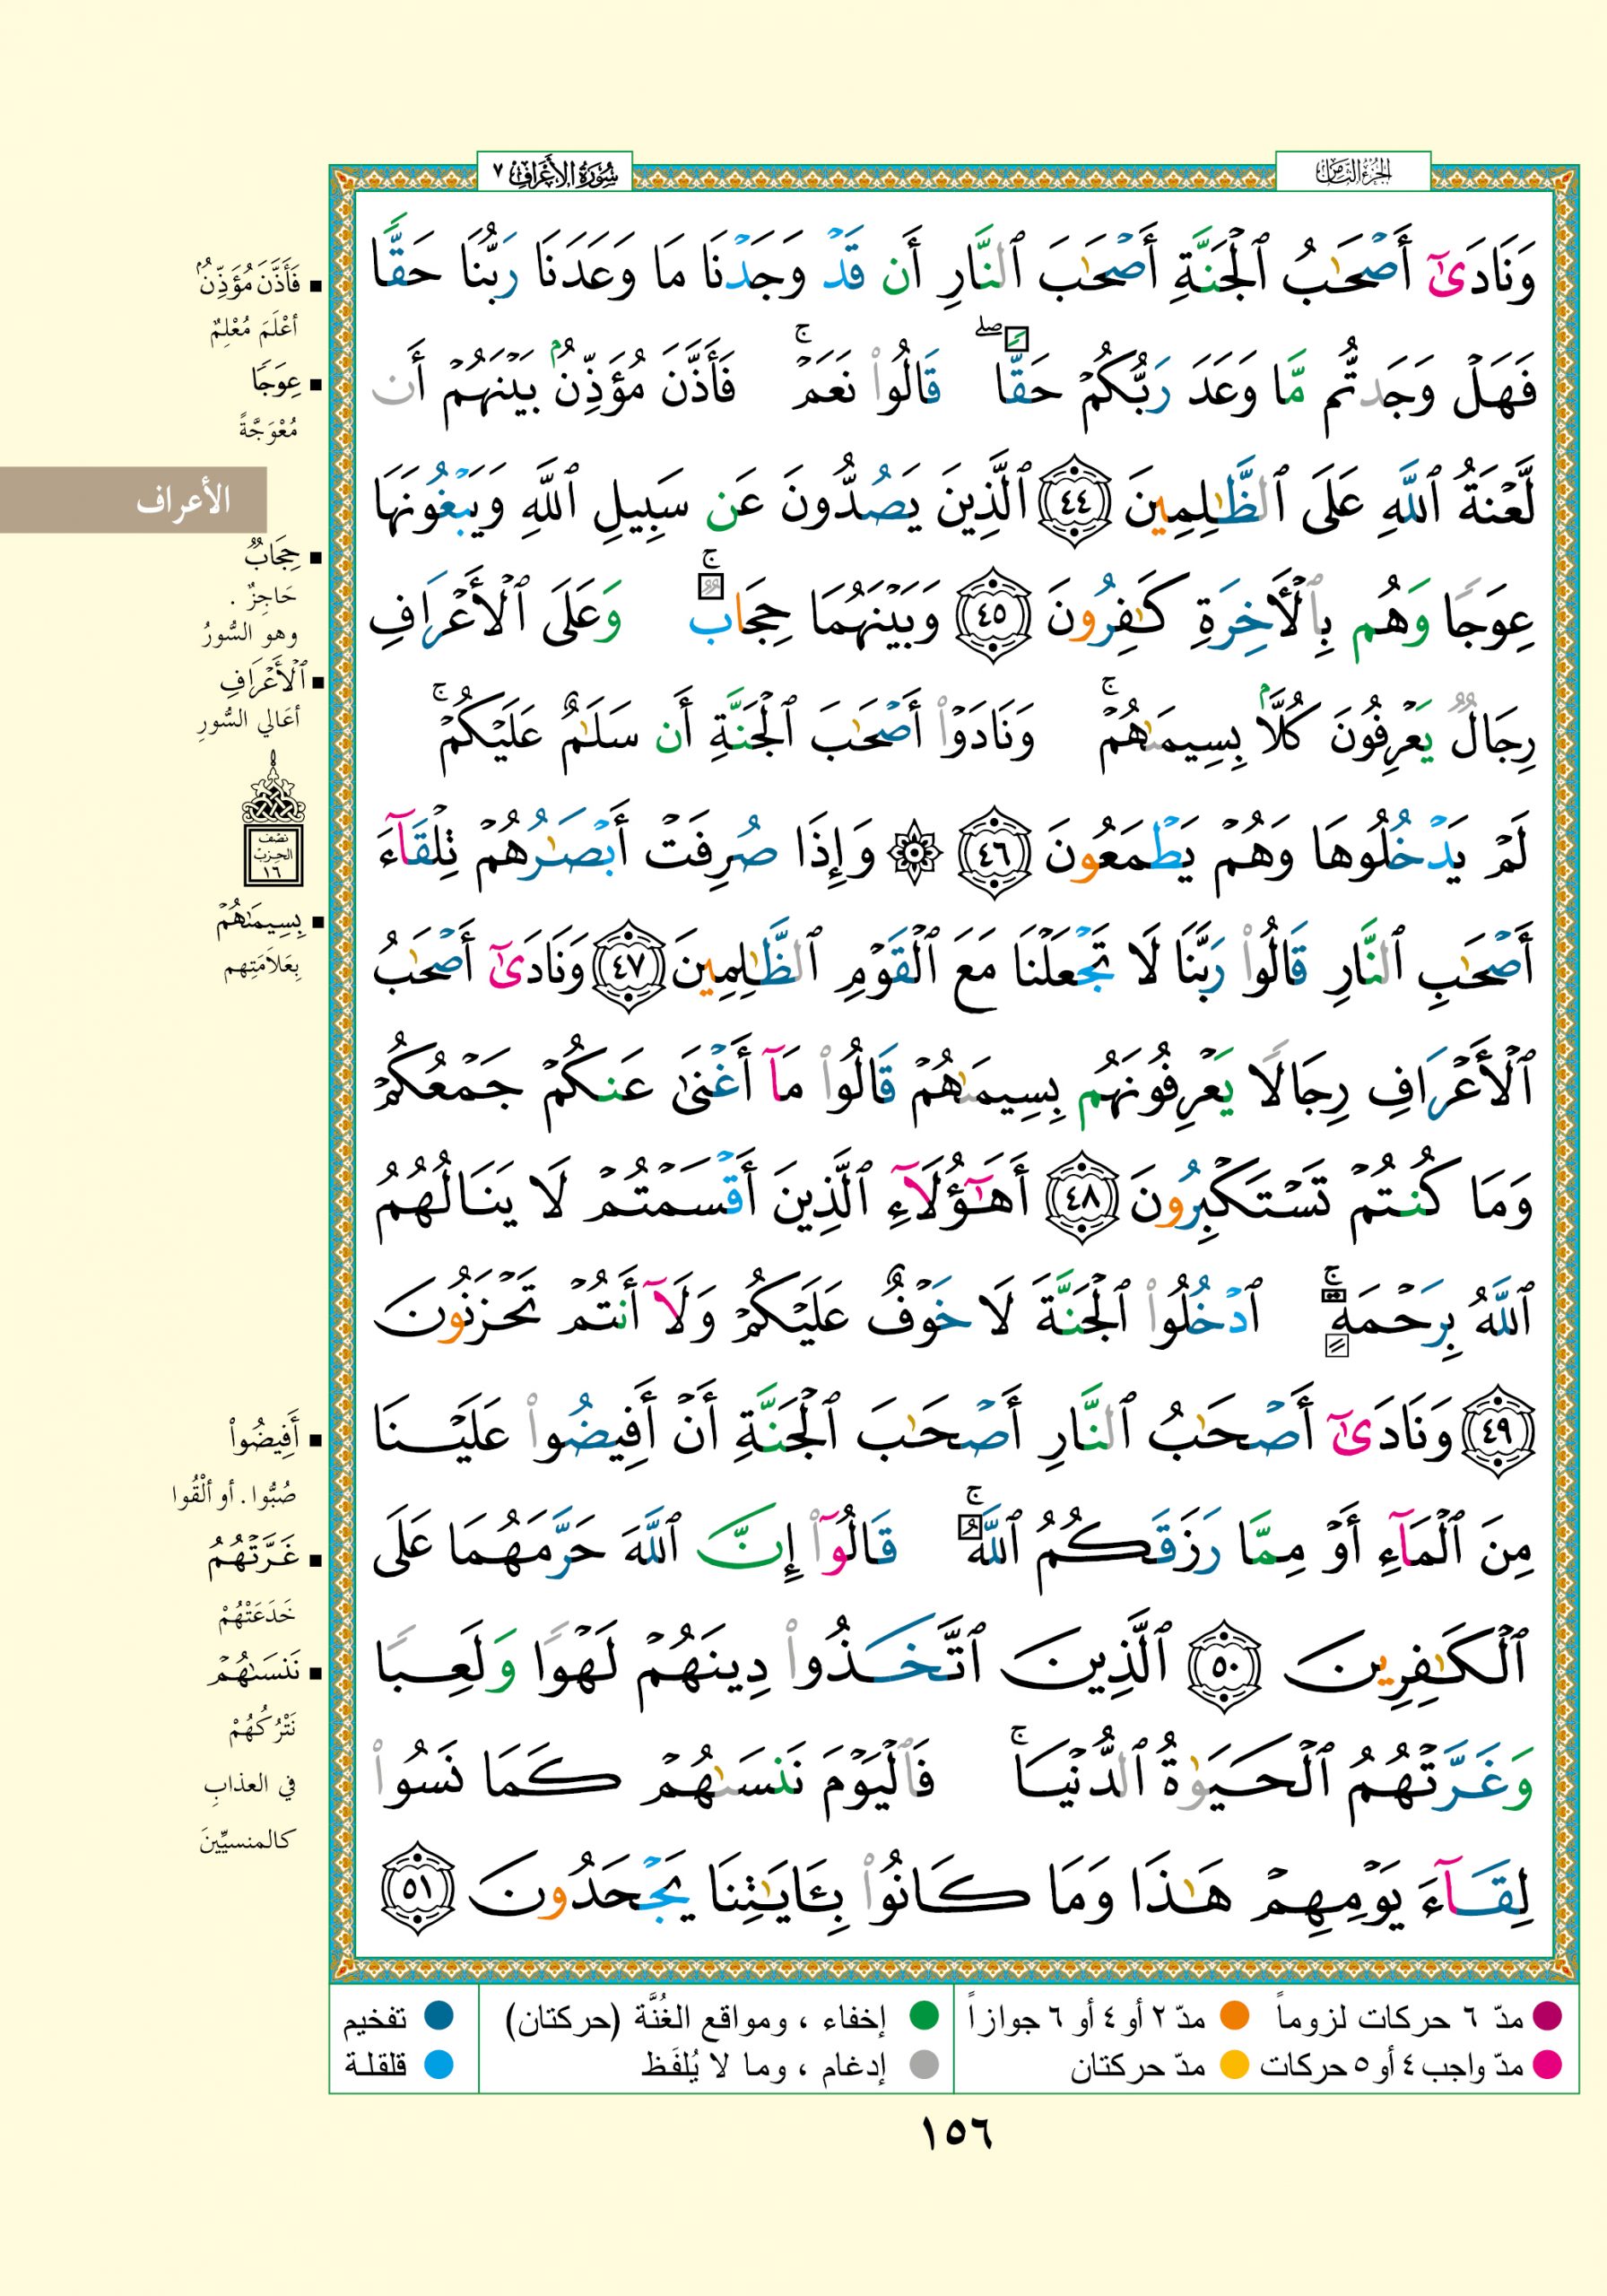 الجزء الثامن
سورة الأعراف ٧
وَنَادَىٰٓ أَصۡحَٰبُ ٱلۡجَنَّةِ أَصۡحَٰبَ ٱلنَّارِ أَن قَدۡ وَجَدۡنَا مَا وَعَدَنَا رَبُّنَا حَقّٗا
فَهَلۡ وَجَدتُّم مَّا وَعَدَ رَبُّكُمۡ حَقّٗاۖ قَالُواْ نَعَمۡۚ فَأَذَّنَ مُؤَذِّنُۢ بَيۡنَهُمۡ أَن
لَّعۡنَةُ ٱللَّهِ عَلَى ٱلظَّٰلِمِينَ ٤٤ ٱلَّذِينَ يَصُدُّونَ عَن سَبِيلِ ٱللَّهِ وَيَبۡغُونَهَا
عِوَجٗا وَهُم بِٱلۡأٓخِرَةِ كَٰفِرُونَ ٤٥ وَبَيۡنَهُمَا حِجَابٞۚ وَعَلَى ٱلۡأَعۡرَافِ
رِجَالٞ يَعۡرِفُونَ كُلَّۢا بِسِيمَىٰهُمۡۚ وَنَادَوۡاْ أَصۡحَٰبَ ٱلۡجَنَّةِ أَن سَلَٰمٌ عَلَيۡكُمۡۚ
لَمۡ يَدۡخُلُوهَا وَهُمۡ يَطۡمَعُونَ ٤٦ ۞ وَإِذَا صُرِفَتۡ أَبۡصَٰرُهُمۡ تِلۡقَآءَ
أَصۡحَٰبِ ٱلنَّارِ قَالُواْ رَبَّنَا لَا تَجۡعَلۡنَا مَعَ ٱلۡقَوۡمِ ٱلظَّٰلِمِينَ ٤٧ وَنَادَىٰٓ أَصۡحَٰبُ
ٱلۡأَعۡرَافِ رِجَالٗا يَعۡرِفُونَهُم بِسِيمَىٰهُمۡ قَالُواْ مَآ أَغۡنَىٰ عَنكُمۡ جَمۡعُكُمۡ
وَمَا كُنتُمۡ تَسۡتَكۡبِرُونَ ٤٨ أَهَٰٓؤُلَآءِ ٱلَّذِينَ أَقۡسَمۡتُمۡ لَا يَنَالُهُمُ
ٱللَّهُ بِرَحۡمَةٍۚ ٱدۡخُلُواْ ٱلۡجَنَّةَ لَا خَوۡفٌ عَلَيۡكُمۡ وَلَآ أَنتُمۡ تَحۡزَنُونَ
٤٩ وَنَادَىٰٓ أَصۡحَٰبُ ٱلنَّارِ أَصۡحَٰبَ ٱلۡجَنَّةِ أَنۡ أَفِيضُواْ عَلَيۡنَا
مِنَ ٱلۡمَآءِ أَوۡ مِمَّا رَزَقَكُمُ ٱللَّهُۚ قَالُوٓاْ إِنَّ ٱللَّهَ حَرَّمَهُمَا عَلَى
ٱلۡكَٰفِرِينَ ٥٠ ٱلَّذِينَ ٱتَّخَذُواْ دِينَهُمۡ لَهۡوٗا وَلَعِبٗا
وَغَرَّتۡهُمُ ٱلۡحَيَوٰةُ ٱلدُّنۡيَاۚ فَٱلۡيَوۡمَ نَنسَىٰهُمۡ كَمَا نَسُواْ
لِقَآءَ يَوۡمِهِمۡ هَٰذَا وَمَا كَانُواْ بِـَٔايَٰتِنَا يَجۡحَدُونَ ٥١
▪ فَأَذَّنَ مُؤَذِّنُۢ
أعْلَمَ مُعْلِمٌ
▪ عِوَجٗا
مُعْوَجَّةً
الأعراف
▪ حِجَابٞ
حَاجِزٌ .
وهو السُّورُ
▪ ٱلۡأَعۡرَافِ
أعَالي السُّورِ
نصف
الحزب
١٦
▪ بِسِيمَىٰهُمۡ
بِعَلامَتِهم
▪ أَفِيضُواْ
صُبُّوا . أو ألْقُوا
▪ غَرَّتۡهُمُ
خَدَعَتْهُمْ
▪ نَنسَىٰهُمۡ
نَتْرُكُهُمْ
في العذابِ
كالمنسيِّينَ
مدّ ٦ حركات لزوماً مدّ ٢ أو ٤ أو ٦ جوازاً
مدّ واجب ٤ أو ٥ حركات مدّ حركتان
إخفاء ، ومواقع الغُنَّة (حركتان)
إدغام ، وما لا يُلفَظ
تفخيم
قلقلة
١٥٦